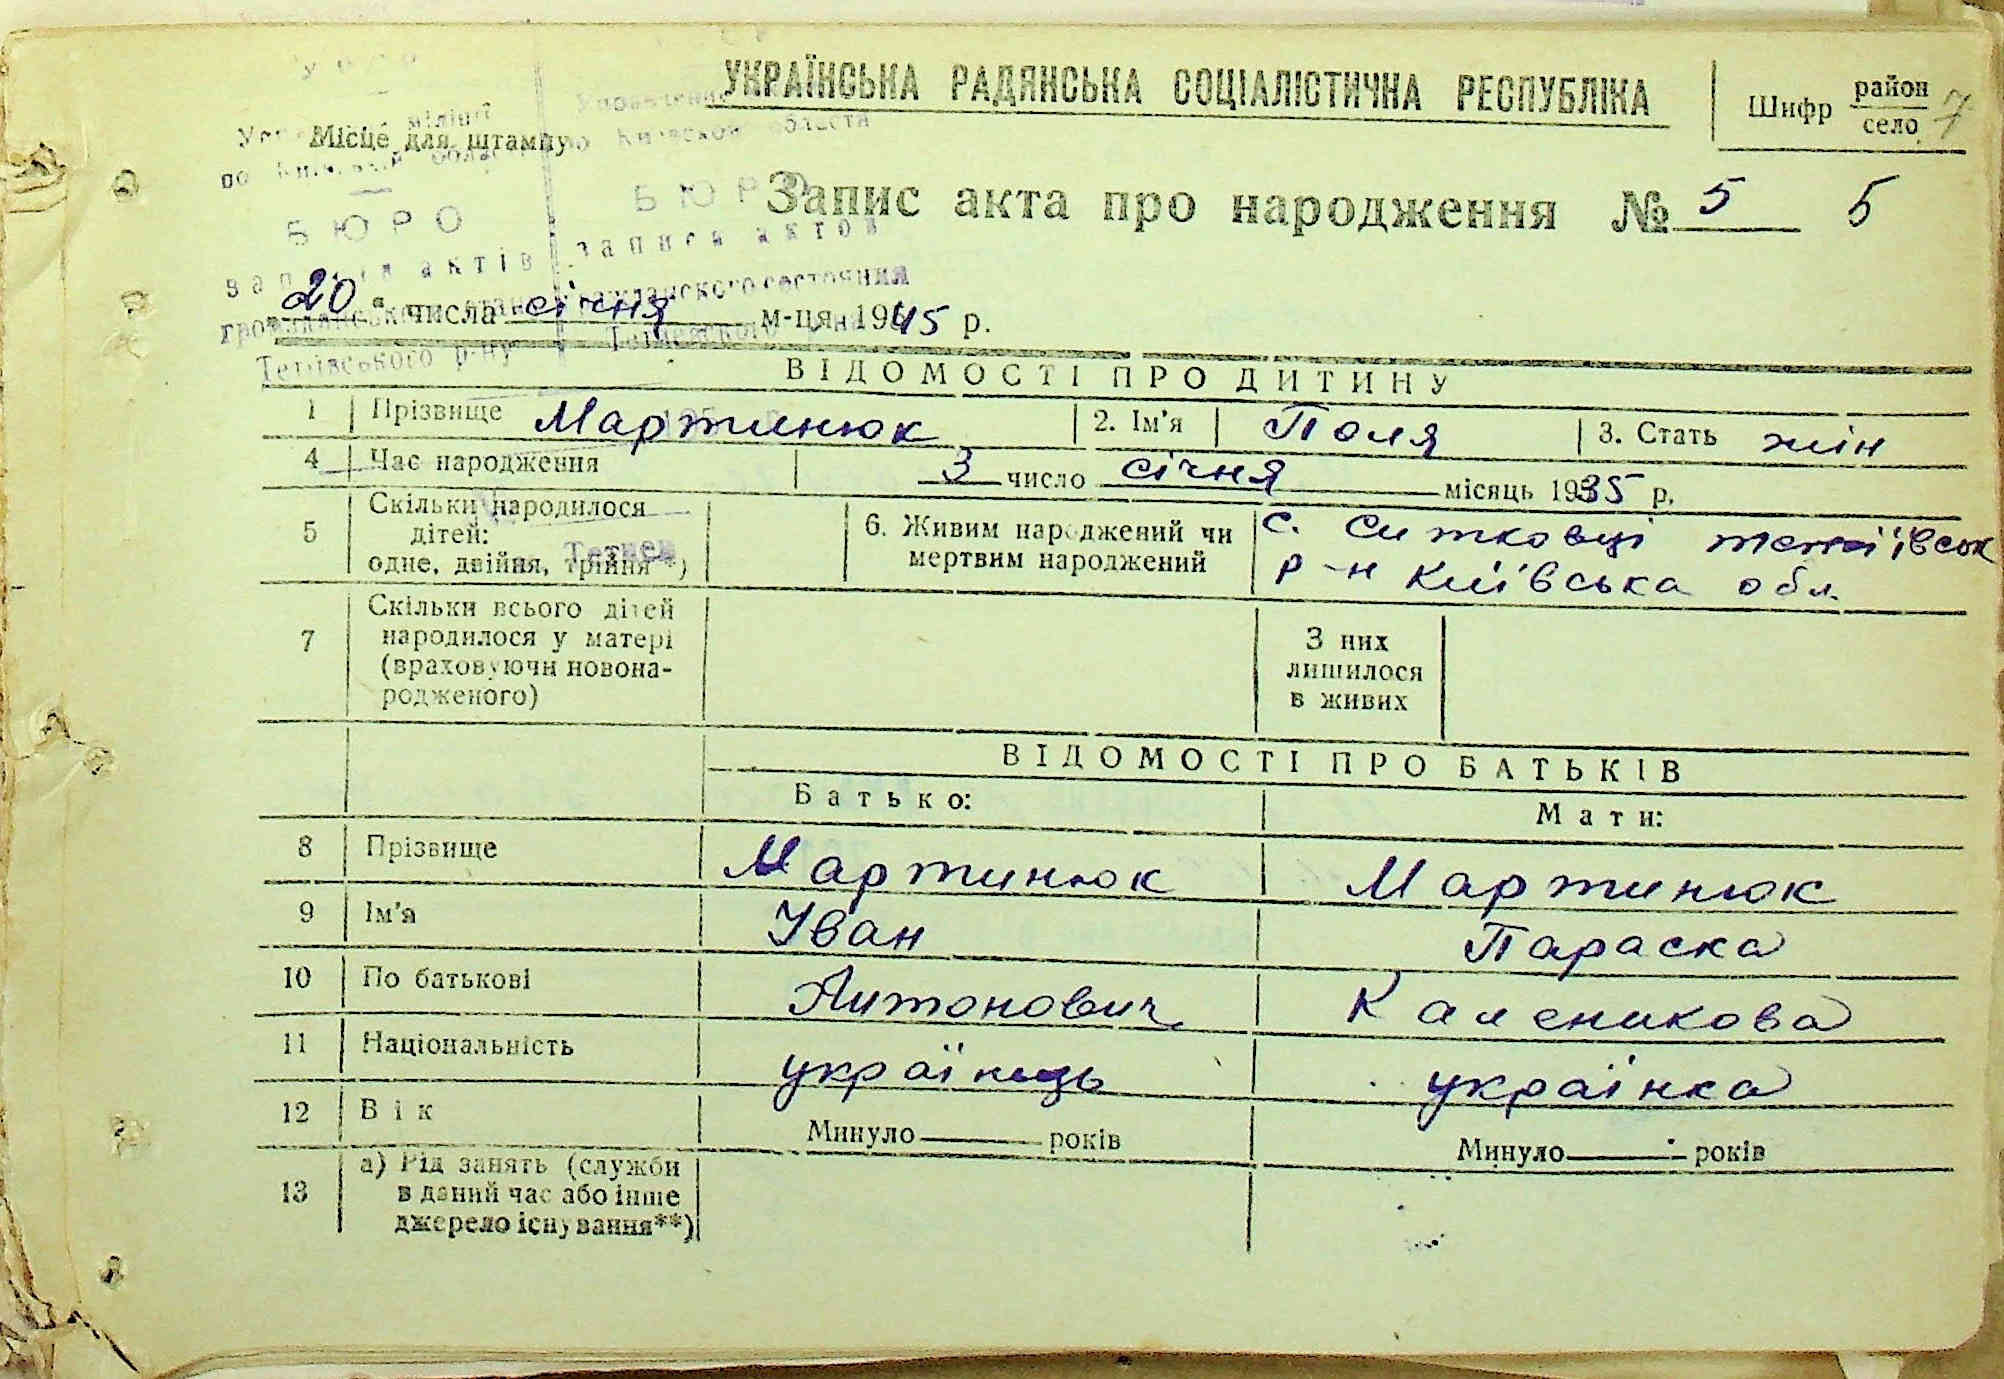 УКРАЇНСЬКА РАДЯНСЬКА СОЦІАЛІСТИЧНА РЕСПУБЛІКА
Шифр район
село 7
Місце для штампу
БЮРО БЮРО
Запис акта про народження № 5 5
записи актів записи актов
гражданского состояния
"20" числа січня м-ця 1945 р.
Тетіївського р-ну
ВІДОМОСТІ ПРО ДИТИНУ
1 Прізвище Мартинюк 2. Ім'я Поля 3. Стать жін
4 Час народження 3 число січня місяць 1935 р.
5 Скільки народилося
дітей:
одне, двійня, трійня*)
6. Живим народжений чи
мертвим народжений
с. Ситковці
р-н Київська обл.
7 Скільки всього дітей
народилося у матері
(враховуючи новона-
родженого)
З них
лишилося
в живих
ВІДОМОСТІ ПРО БАТЬКІВ
Батько: Мати:
8 Прізвище Мартинюк Мартинюк
9 Ім'я Іван Параска
10 По батькові Антонович Каленикова
11 Національність українець українка
12 Вік Минуло років Минуло років
13 а) Рід занять (служби
в даний час або інше
джерело існування**)